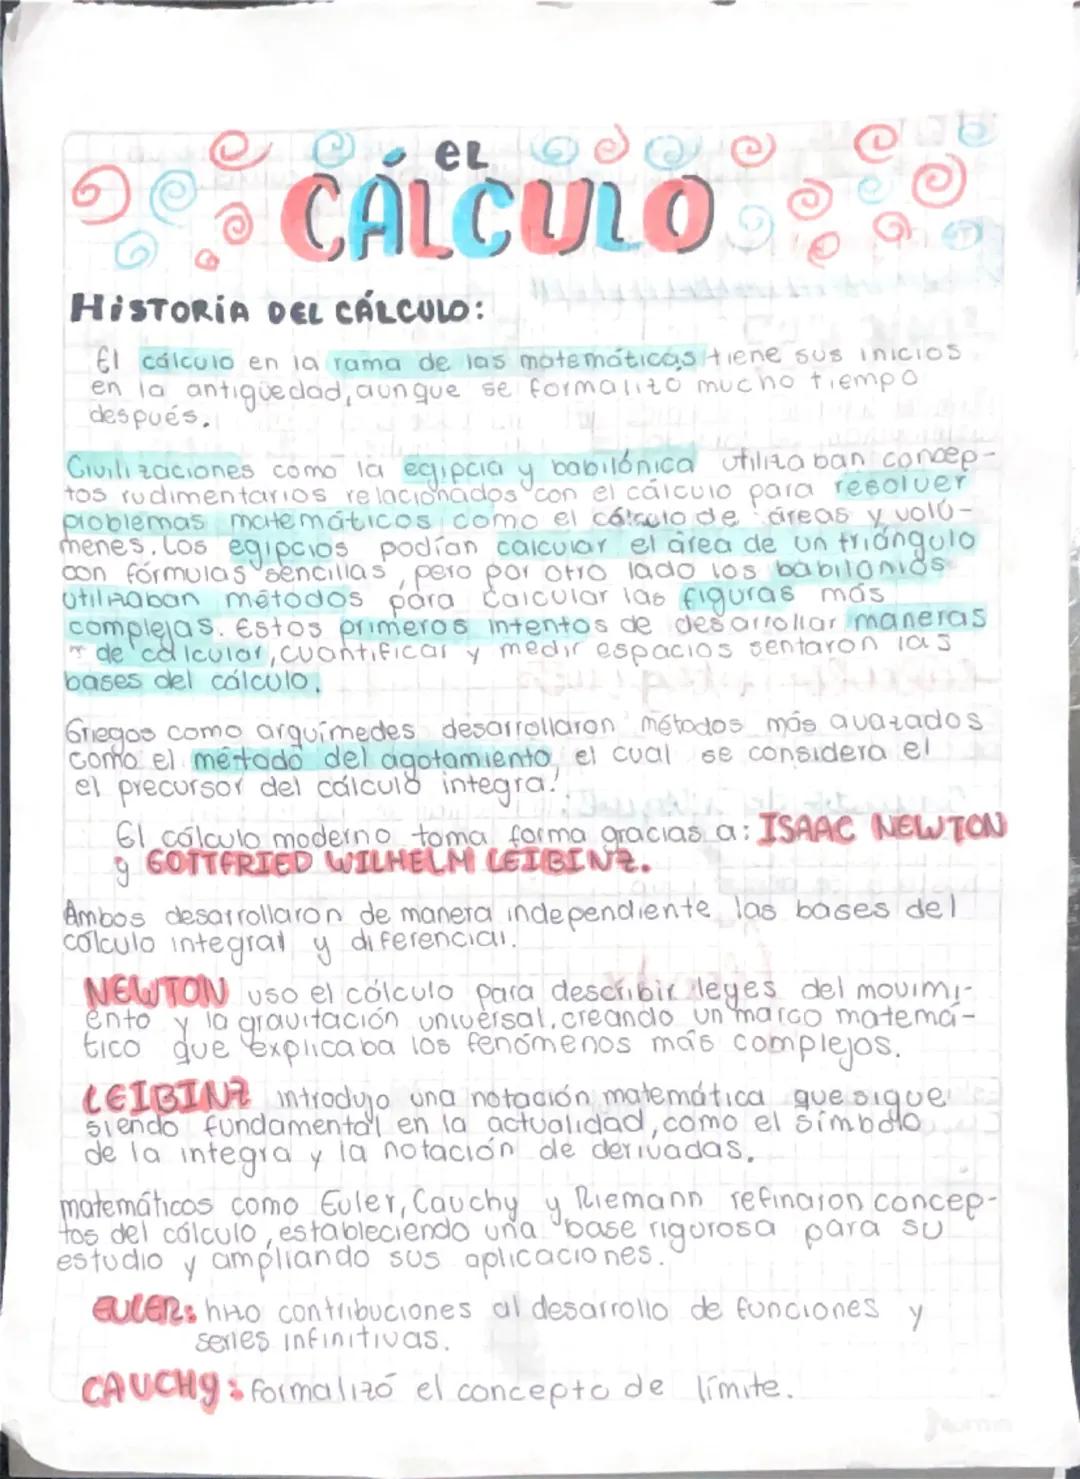 el
CÁLCULO
HISTORIA DEL CÁLCULO:
El cálculo en la rama de las matemáticas tiene sus inicios
en la antigüedad, aunque se formalizo mucho tiempo
después.
Civilizaciones como la egipcia y babilónica utilizaban concep-
tos rudimentarios relacionados con el cálculo para resolver
problemas matemáticos como el cálculo de áreas y volú-
menes. Los egipcios podían calcular el área de un triángulo
con fórmulas sencillas, pero por otro lado los babilonios
utilizaban métodos para calcular las figuras más
complejas. Estos primeros intentos de desarrollar maneras
de calcular, cuantificar y medir espacios sentaron las
bases del cálculo.
Griegos como arquímedes desarrollaron métodos más avazados
como el método del agotamiento, el cual se considera el
el precursor del cálculo integral.
El cálculo moderno toma forma gracias a: ISAAC NEWTON
y GOTTFRIED WILHELM LEIBINZ.
Ambos desarrollaron de manera independiente las bases del
cálculo integral y diferencial.
NEWTON uso el cálculo para describir leyes del movimi-
ento y la gravitación universal, creando un marco matemá-
tico que explicaba los fenómenos más complejos.
LEIBINZ introdujo una notación matemática que sigue
siendo fundamental en la actualidad, como el símbolo
de la integra y la notación de derivadas.
matemáticos como Euler, Cauchy y Riemann refinaron concep-
tos del cálculo, estableciendo una base rigurosa para su
estudio y ampliando sus aplicaciones.
EULER: hizo contribuciones al desarrollo de funciones y
series infinitivas.
CAUCHY: formalizó el concepto de límite.